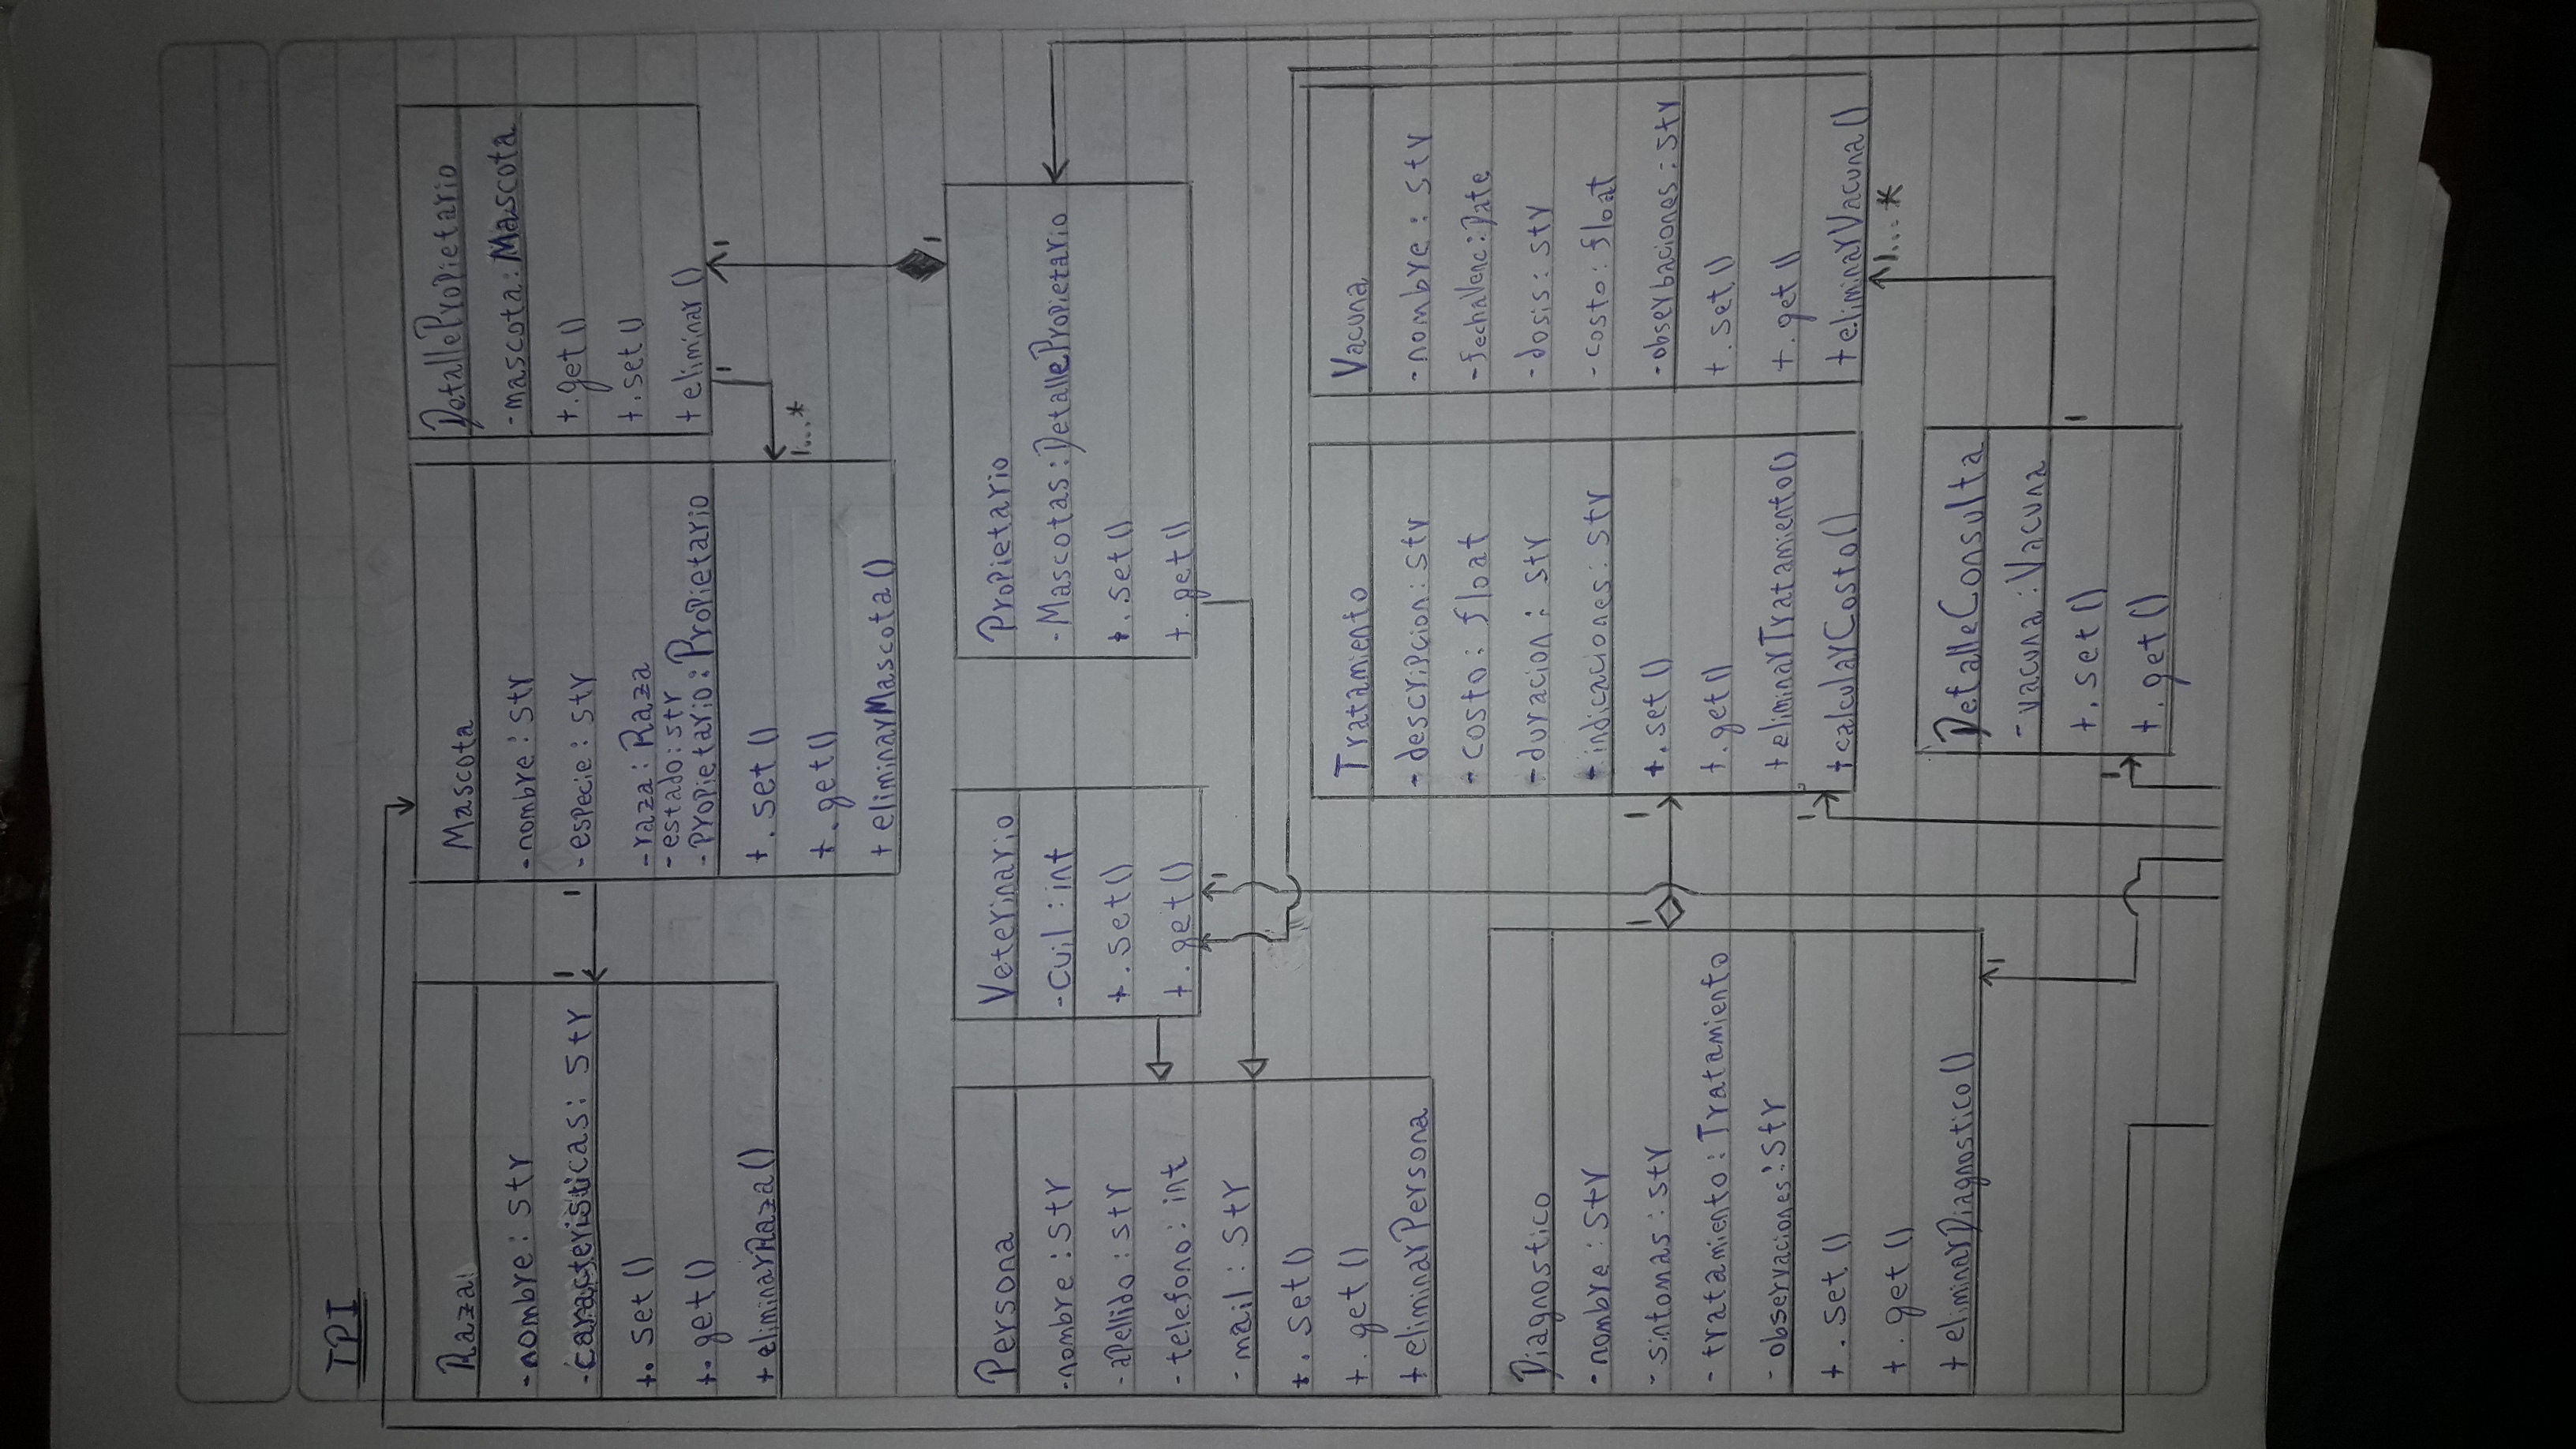 TPI
Raza
-nombre: str
-caracteristicas: str
+. set()
+. get()
+ eliminarRaza()
1
1
Mascota
-nombre: str
-especie: str
-raza: Raza
-estado: str
-Propietario: Propietario
+. set()
+. get()
+ eliminarMascota()
DetallePropietario
-mascota: Mascota
+.get()
+.set()
+ eliminar()
1
1...*
1
1
Persona
-nombre: str
-apellido: str
-telefono: int
-mail: str
+. set()
+. get()
+ eliminarPersona
Veterinario
-cuil: int
+. set()
+. get()
1
Propietario
-Mascotas: DetallePropietario
+. set()
+. get()
Tratamiento
-descripcion: str
-costo: float
-duracion: str
-indicaciones: str
+. set()
+. get()
+ eliminarTratamiento()
+calcularCosto()
Vacuna
-nombre: str
-fechaVenc: Date
-dosis: str
-costo: float
-obserbaciones: str
+. set()
+. get()
+ eliminarVacuna()
1...*
Diagnostico
-nombre: str
-sintomas: str
-tratamiento: Tratamiento
-observaciones: str
+. set()
+. get()
+ eliminarDiagnostico()
1
1
1
1
DetalleConsulta
-vacuna: Vacuna
+. set()
+. get()
1
1